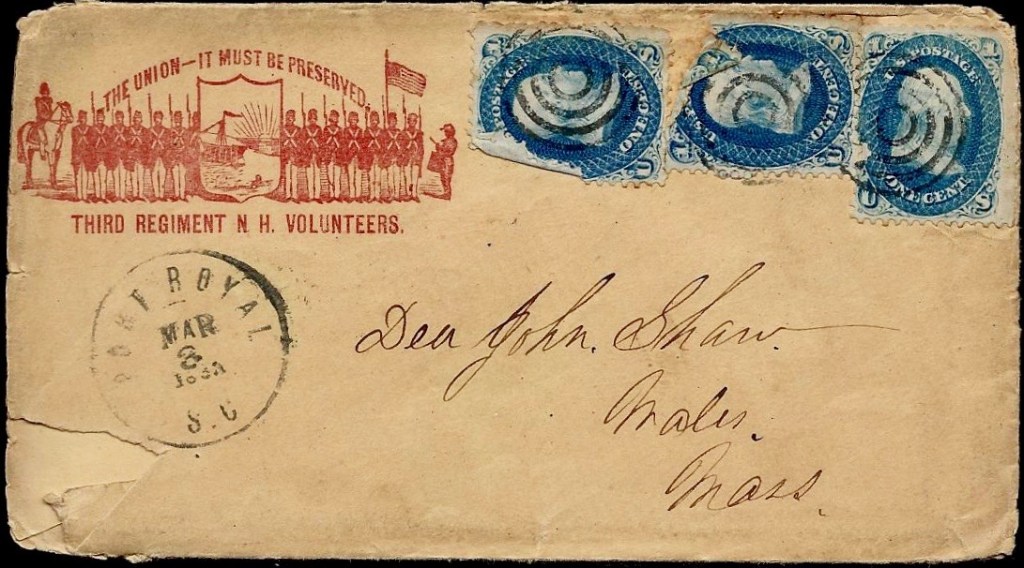 THE UNION—IT MUST BE PRESERVED.
THIRD REGIMENT N. H. VOLUNTEERS.
U.S. POSTAGE
ONE CENT
POSTAGE
ONE CENT
U.S. POSTAGE
ONE CENT.
PORT ROYAL
MAR
3
S.C
Dea John. Shaw.
Wales.
Mass.